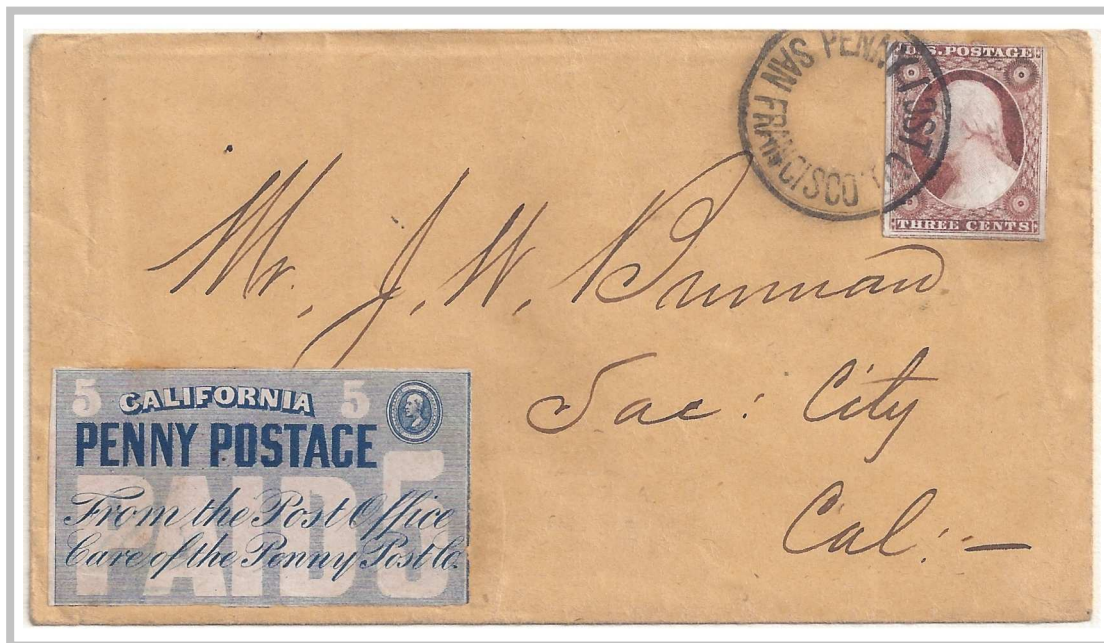 PENNY POST CO.
SAN FRANCISCO
U.S. POSTAGE
THREE CENTS
Mr. J. W. Brennan
Sac: City
Cal:—
5 CALIFORNIA 5
PENNY POSTAGE
PAID 5
From the Post Office
Care of the Penny Post Co.